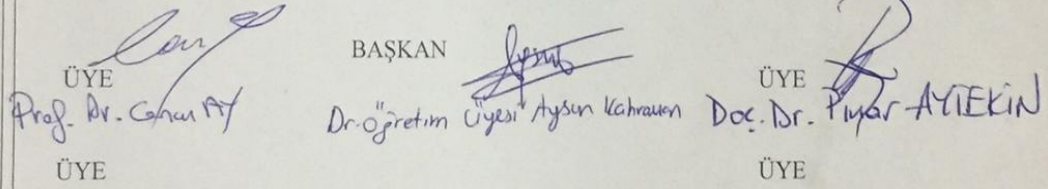 BAŞKAN
ÜYE ÜYE
Prof. Dr. Canan AY Dr. Öğretim Üyesi Aysun Kahraman Doç. Dr. Pınar AYTEKİN
ÜYE ÜYE